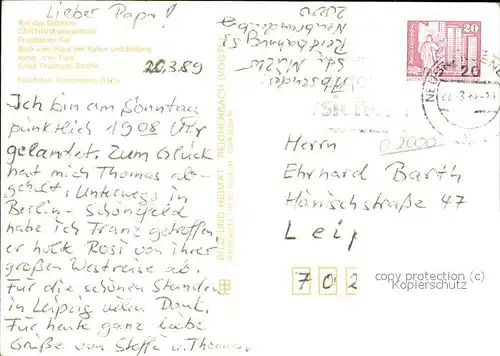 Lieber Papa!
CENTRUM-Warenhaus
Friedländer Tor
Blick vom Haus der Kultur und Bildung
Hotel "Vier Tore"
Ernst-Thälmann-Straße
20.3.89
Ich bin am Sonntag
pünktlich 1908 Uhr
gelandet. Zum Glück
hat mich Thomas ab-
geholt. Unterwegs in
Berlin-Schönefeld
habe ich Franz getroffen,
er holte Rosi von ihrer
großen Westreise ab.
Für die schönen Stunden
in Leipzig vielen Dank.
Für heute ganz liebe
Grüße von Steffi u. Thomas
BILD UND HEIMAT REICHENBACH (VOGTL)
Absender:
Neubrandenburg
20
Herrn
Ehrhard Barth
Hänischstraße 47
Leip
702
copyright protection (c)
Kopierschutz